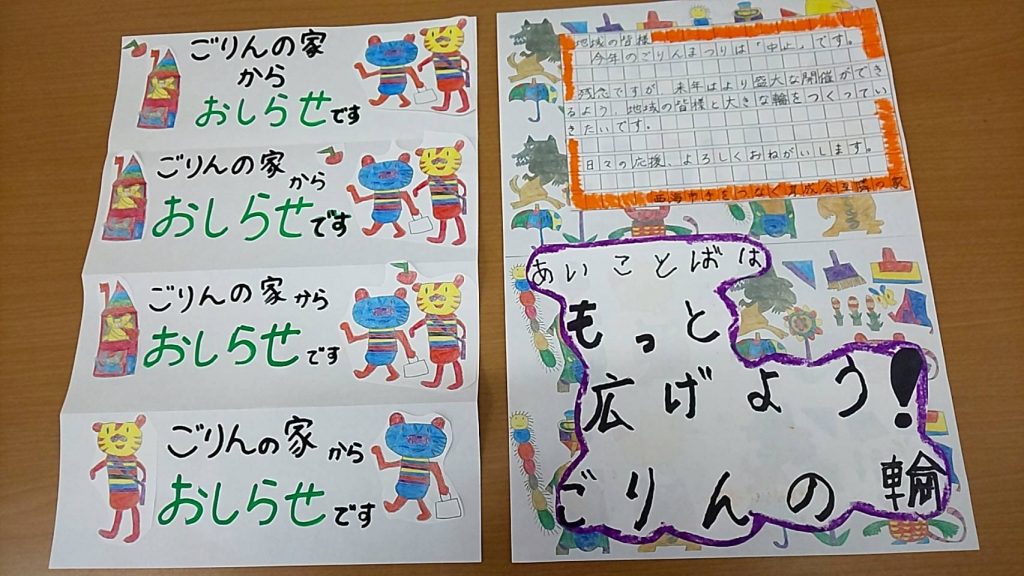 ごりんの家
から
おしらせです
ごりんの家から
おしらせです
ごりんの家から
おしらせです
ごりんの家から
おしらせです
地域の皆様
今年のごりんまつりは「中止」です。
残念ですが、来年はより盛大な開催ができ
るよう、地域の皆様と大きな輪をつくってい
きたいです。
日々の応援、よろしくおねがいします。
西海市手をつなぐ育成会五隣の家
あいことばは
もっと
広げよう!
ごりんの輪